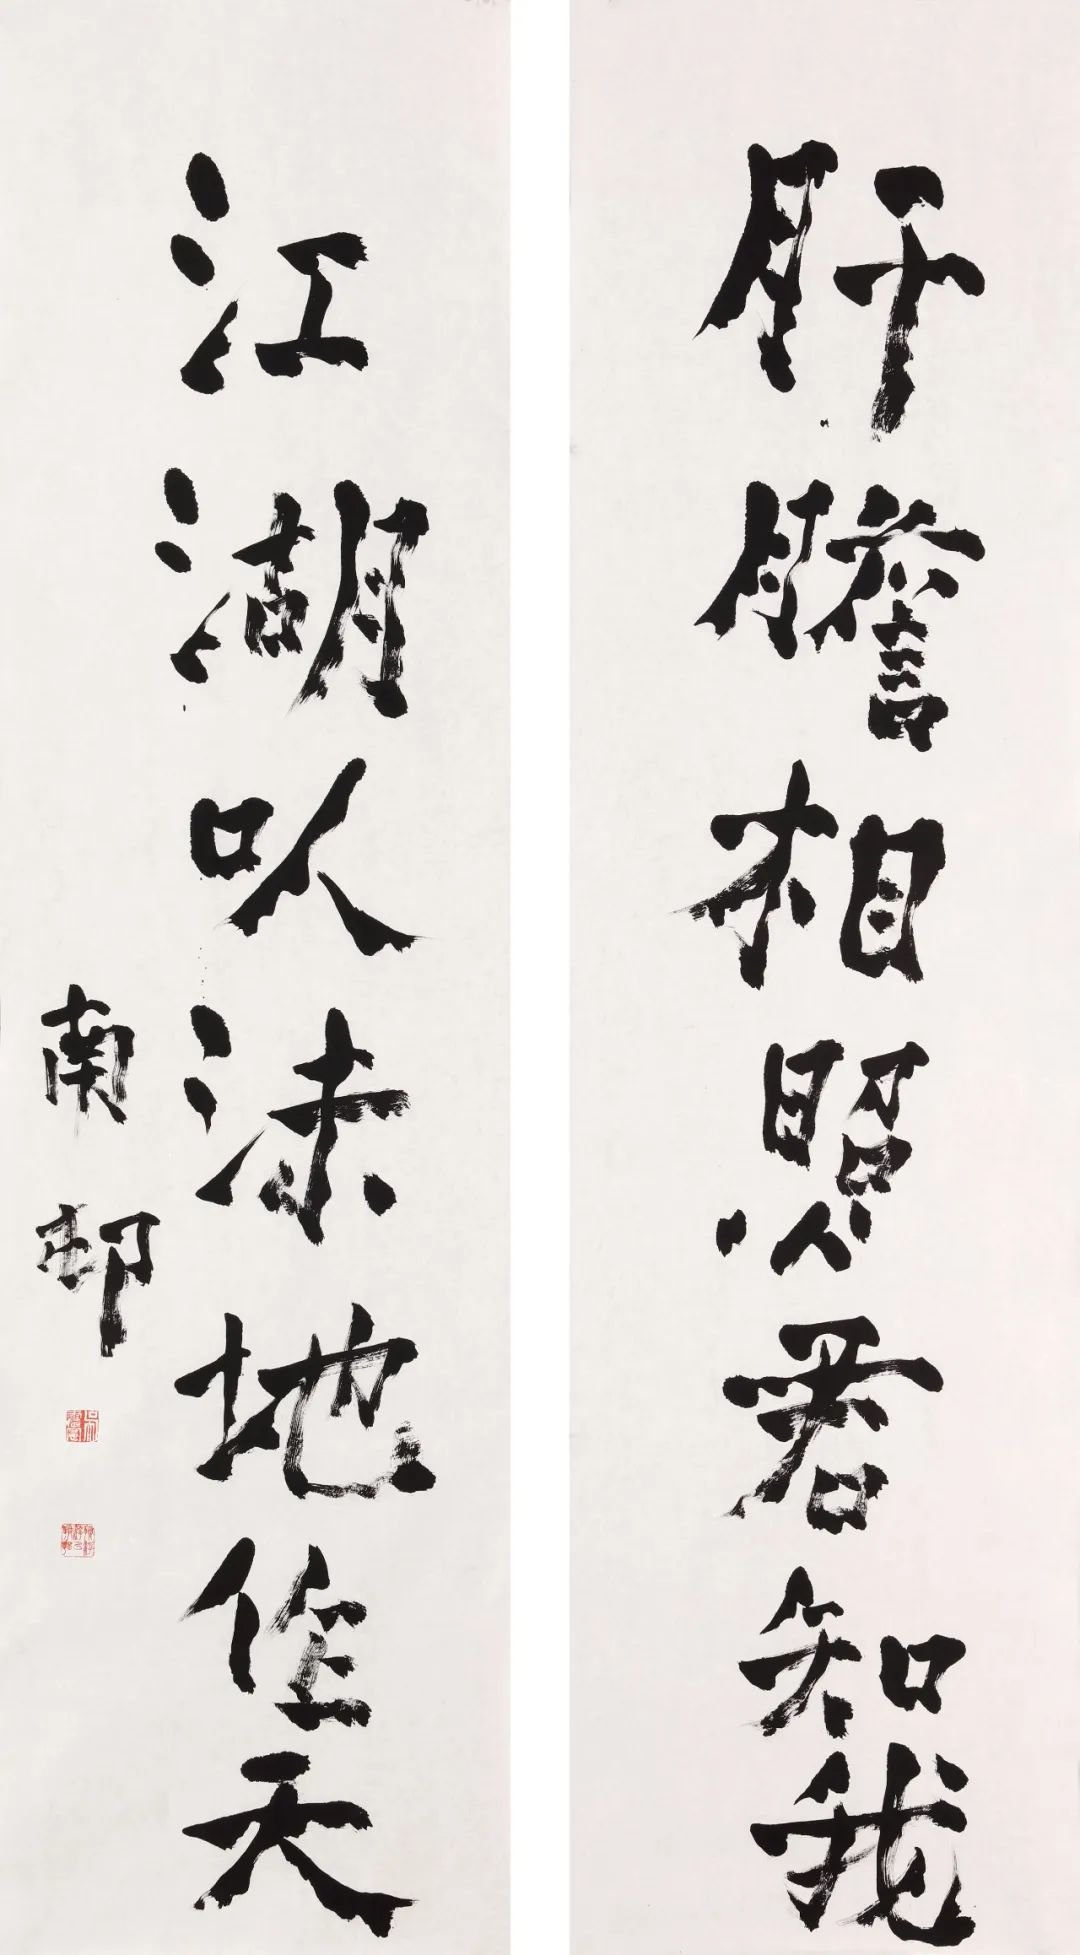 肝膽相照君知我
江湖以沫地作天
南邨